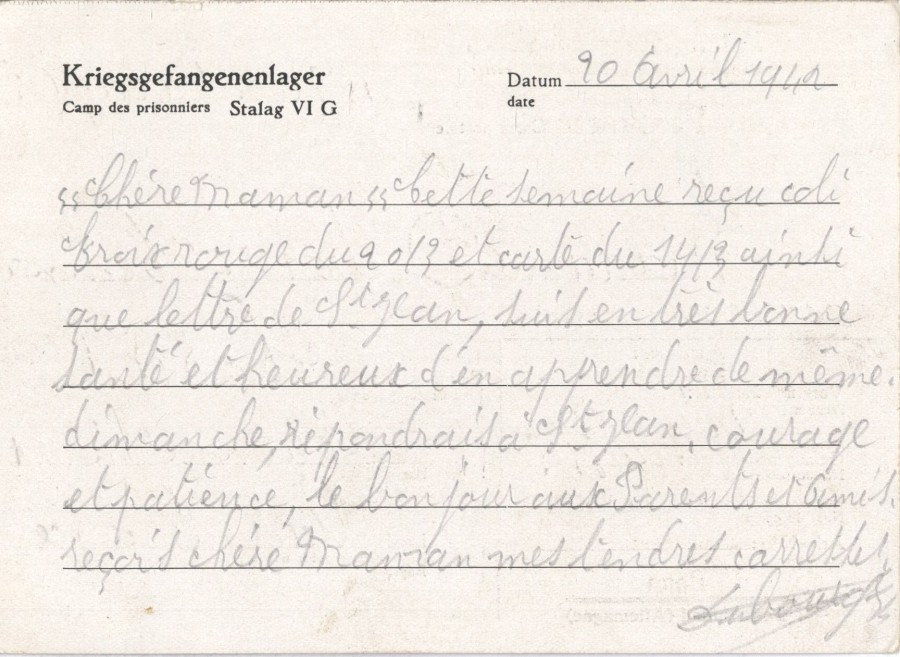 Kriegsgefangenenlager
Camp des prisonniers Stalag VI G
Datum 20 Avril 1942
date
"Chère Maman" Cette semaine reçu coli
Croix rouge du 20/3 et carte du 14/3 ainsi
que lettre de St Jean, suis en très bonne
santé et heureux d'en apprendre de même.
dimanche, répondrais à St Jean, courage
et patience, le bonjour aux Parents et Amis.
reçois chère Maman mes tendres carresses.